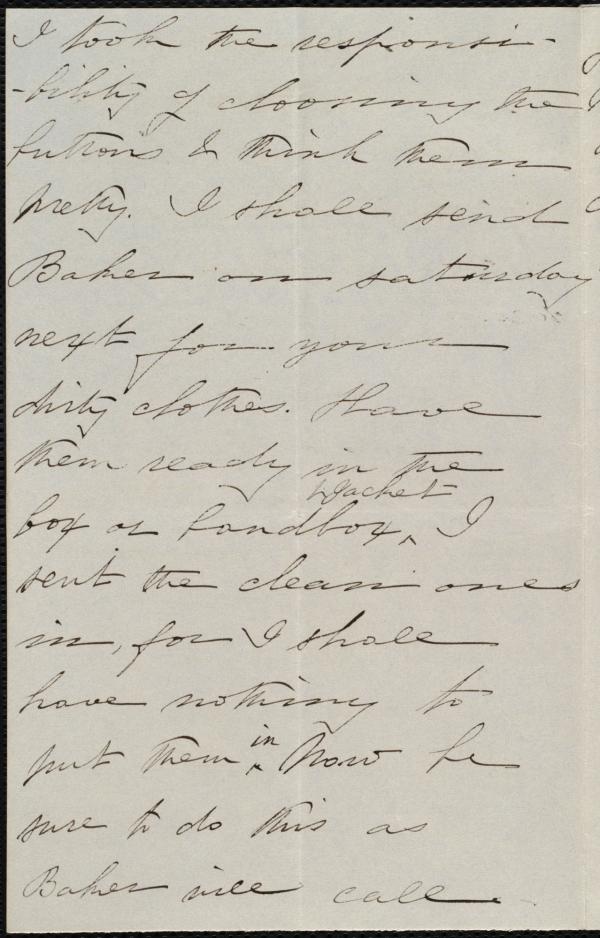 I took the responsi-
-bility of choosing the
buttons & think them
pretty. I shall send
Baker on saturday
next for your
dirty clothes. Have
them ready in the
box or bandbox,
I
sent the clean ones
in, for I shall
have nothing to
put them in Now be
sure to do this as
Baker will call.